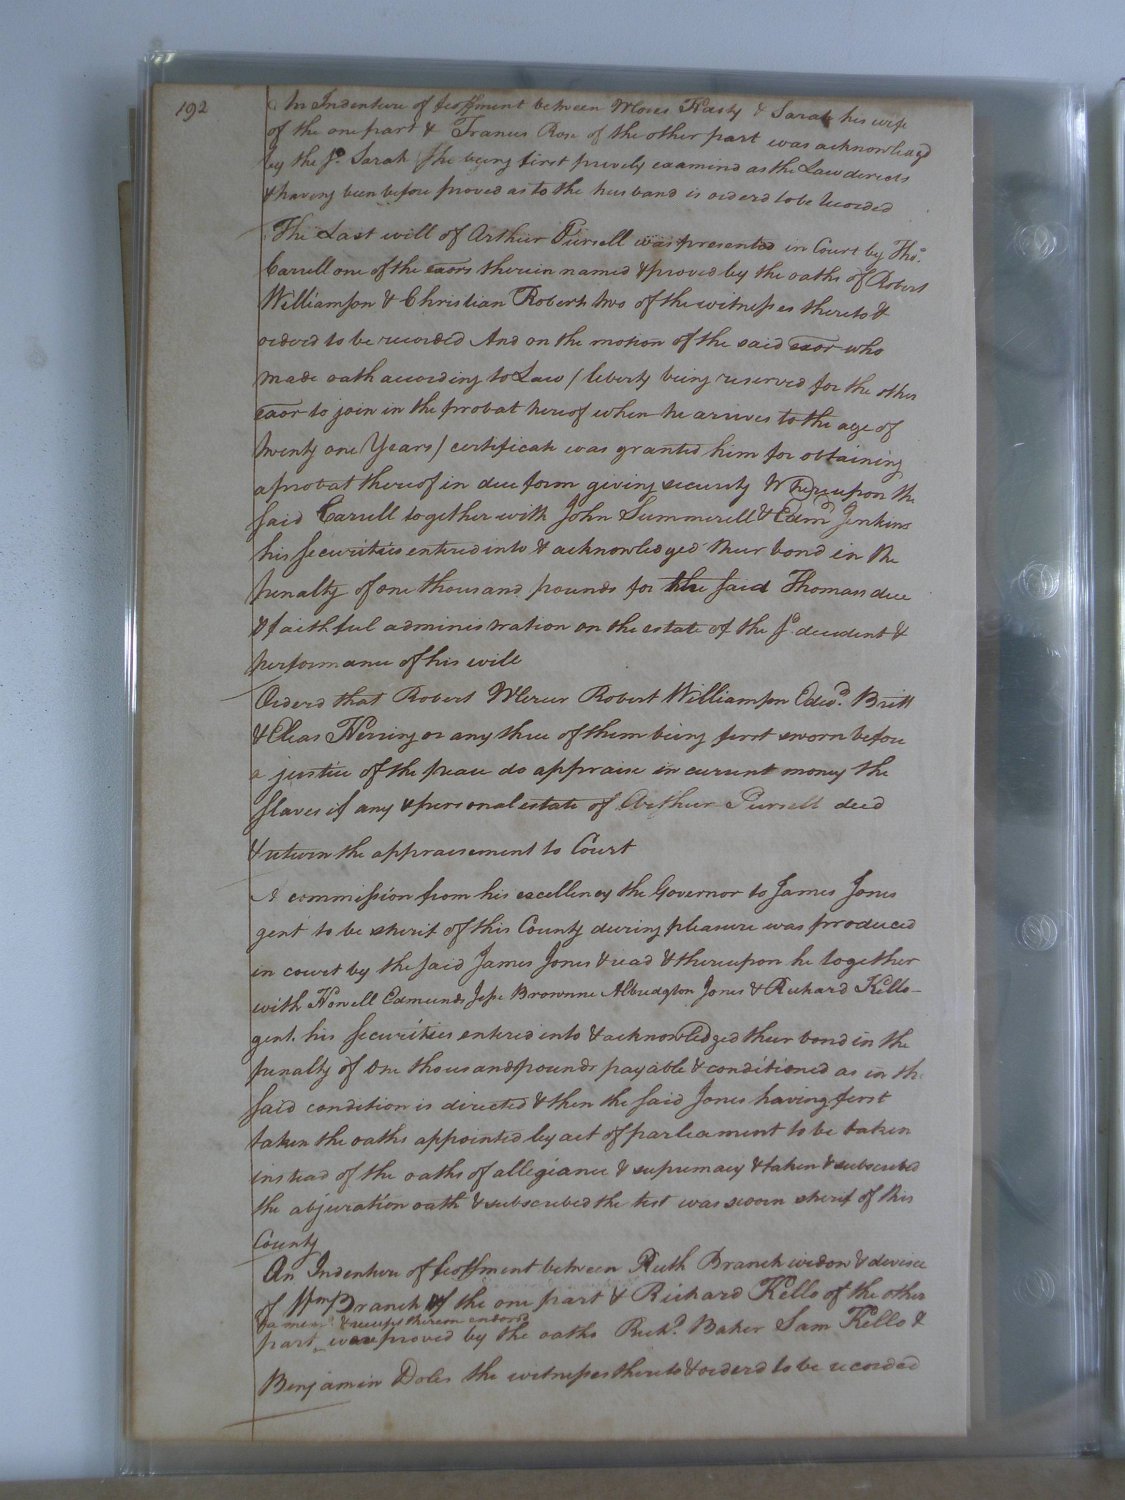 192
An Indenture of feoffment between Moses Hasty & Sarah his wife
of the one part & Francis Rose of the other part was acknowledgd
by the sd. Sarah she being first privily examind as the Law directs
& having been before proved as to the husband is orderd to be recorded
The Last will of Arthur Pursell was presented in Court by Thos.
Carrell one of the exors therein named & proved by the oaths of Robert
Williamson & Christian Roberts two of the witnesses thereto &
orderd to be recorded And on the motion of the said exor who
made oath according to Law / liberty being reserved for the other
exor to join in the probat hereof when he arrives to the age of
twenty one Years / certificate was granted him for obtaining
a probat thereof in due form giving security Whereupon the
said Carrell together with John Summerell & Edmd Jenkins
his securities entered into & acknowledged their bond in the
penalty of one thousand pounds for the said Thomas due
& faithful administration on the estate of the sd decedent &
performance of his will
Orderd that Robert Mercer Robert Williamson Edwd. Britt
& Elias Herring or any three of them being first sworn before
a justice of the peace do appraise in current money the
slaves if any & personal estate of Arthur Pursell decd
& return the appraisement to Court
A commission from his excellency the Governor to James Jones
gent to be sherif of this County during pleasure was produced
in court by the said James Jones & read & thereupon he together
with Howell Edmunds Jesse Browne Albridgton Jones & Richard Kello
gent. his securities entered into & acknowledged their bond in the
penalty of one thousand pounds payable & conditioned as in the
said condition is directed & then the said Jones having first
taken the oaths appointed by act of parliament to be taken
instead of the oaths of allegiance & supremacy & taken & subscribed
the abjuration oath & subscribed the test was sworn sherif of this
County
An Indenture of feoffment between Ruth Branch widow & devisee
of Wm Branch of the one part & Richard Kello of the other
& receipt thereon endorsd
part were proved by the oaths Richd. Baker Sam Kello &
Benjamin Doles the witnesses thereto & orderd to be recorded